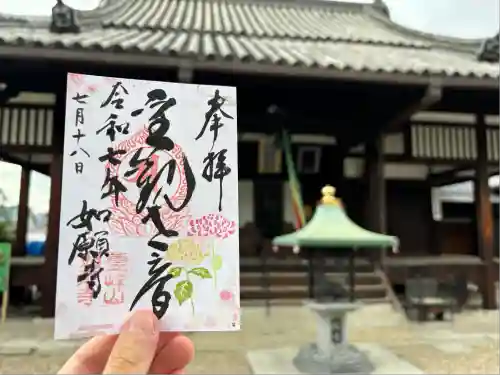 奉拝
聖観世音
令和七年
七月十八日
如願寺